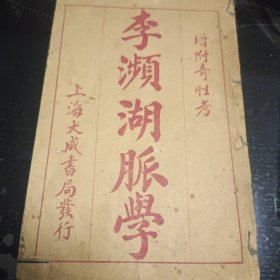 增附奇性考
李瀕湖脈學
上海大成書局發行